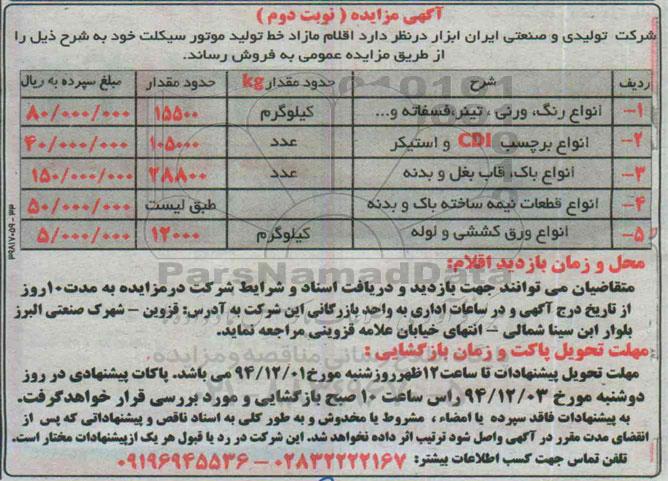 آگهی مزایده ( نوبت دوم )
شرکت تولیدی و صنعتی ایران ابزار درنظر دارد اقلام مازاد خط تولید موتور سیکلت خود به شرح ذیل را
از طریق مزایده عمومی به فروش رساند.
ردیف شرح حدود مقدار kg حدود مقدار مبلغ سپرده به ریال
۱- انواع رنگ، ورنی ، تینر، فسفاته و... کیلوگرم ۱۵۵۰۰ ۸۰/۰۰۰/۰۰۰
۲- انواع برچسب CDI و استیکر عدد ۱۰۵۰۰۰ ۴۰/۰۰۰/۰۰۰
۳- انواع باک، قاب بغل و بدنه عدد ۲۸۸۰۰ ۱۵۰/۰۰۰/۰۰۰
۴- انواع قطعات نیمه ساخته باک و بدنه طبق لیست ۵۰/۰۰۰/۰۰۰
۵- انواع ورق کششی و لوله کیلوگرم ۱۲۰۰۰ ۵/۰۰۰/۰۰۰
محل و زمان بازدید اقلام:
متقاضیان می توانند جهت بازدید و دریافت اسناد و شرایط شرکت درمزایده به مدت۱۰روز
از تاریخ درج آگهی و در ساعات اداری به واحد بازرگانی این شرکت به آدرس: قزوین – شهرک صنعتی البرز
بلوار ابن سینا شمالی – انتهای خیابان علامه قزوینی مراجعه نماید.
مهلت تحویل پاکت و زمان بازگشایی :
مهلت تحویل پیشنهادات تا ساعت۱۲ظهرروزشنبه مورخ۹۴/۱۲/۰۱ می باشد. پاکات پیشنهادی در روز
دوشنبه مورخ ۹۴/۱۲/۰۳ راس ساعت ۱۰ صبح بازگشایی و مورد بررسی قرار خواهدگرفت.
به پیشنهادات فاقد سپرده یا امضاء ، مشروط یا مخدوش و به طور کلی به اسناد ناقص و پیشنهاداتی که پس از
انقضای مدت مقرر در آگهی واصل شود ترتیب اثر داده نخواهد شد. این شرکت در رد یا قبول هر یک ازپیشنهادات مختار است.
تلفن تماس جهت کسب اطلاعات بیشتر: ۰۲۸۳۲۲۲۲۱۶۷ – ۰۹۱۹۶۹۴۵۵۳۶
ParsNamadData